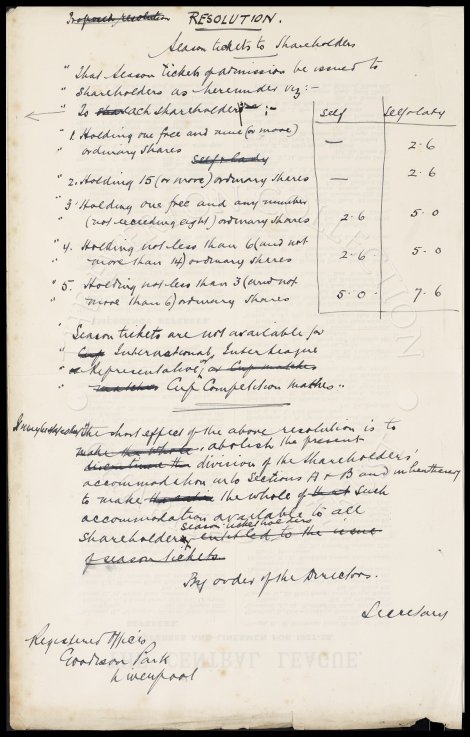 Proposed resolution RESOLUTION.
Season tickets to Shareholders
" That Season tickets of admission be issued to
" shareholders as hereunder viz:-
" To each shareholder :-
Self Self & lady
" 1. Holding one free and nine (or more)
" ordinary shares — 2.6
Self & lady
" 2. Holding 15 (or more) ordinary shares — 2.6
" 3 Holding one free and any number
" (not exceeding eight) ordinary shares 2.6 5.0
" 4. Holding not less than 6 (and not
" more than 14) ordinary shares 2.6 5.0
" 5. Holding not less than 3 (and not
" more than 6) ordinary shares 5.0 7.6
" Season tickets are not available for
" Cup International, Inter League
" Representative, or Cup matches
" matches Cup Competition matches."
The short effect of the above resolution is to
make the whole, abolish the present
discontinue the division of the shareholders'
accommodation into Sections A & B and
to make the whole of such
accommodation available to all
season ticket holders
shareholders entitled to the issue
of season tickets
By order of the Directors.
Secretary
Registered Offices,
Goodison Park
Liverpool
CENTRAL LEAGUE.